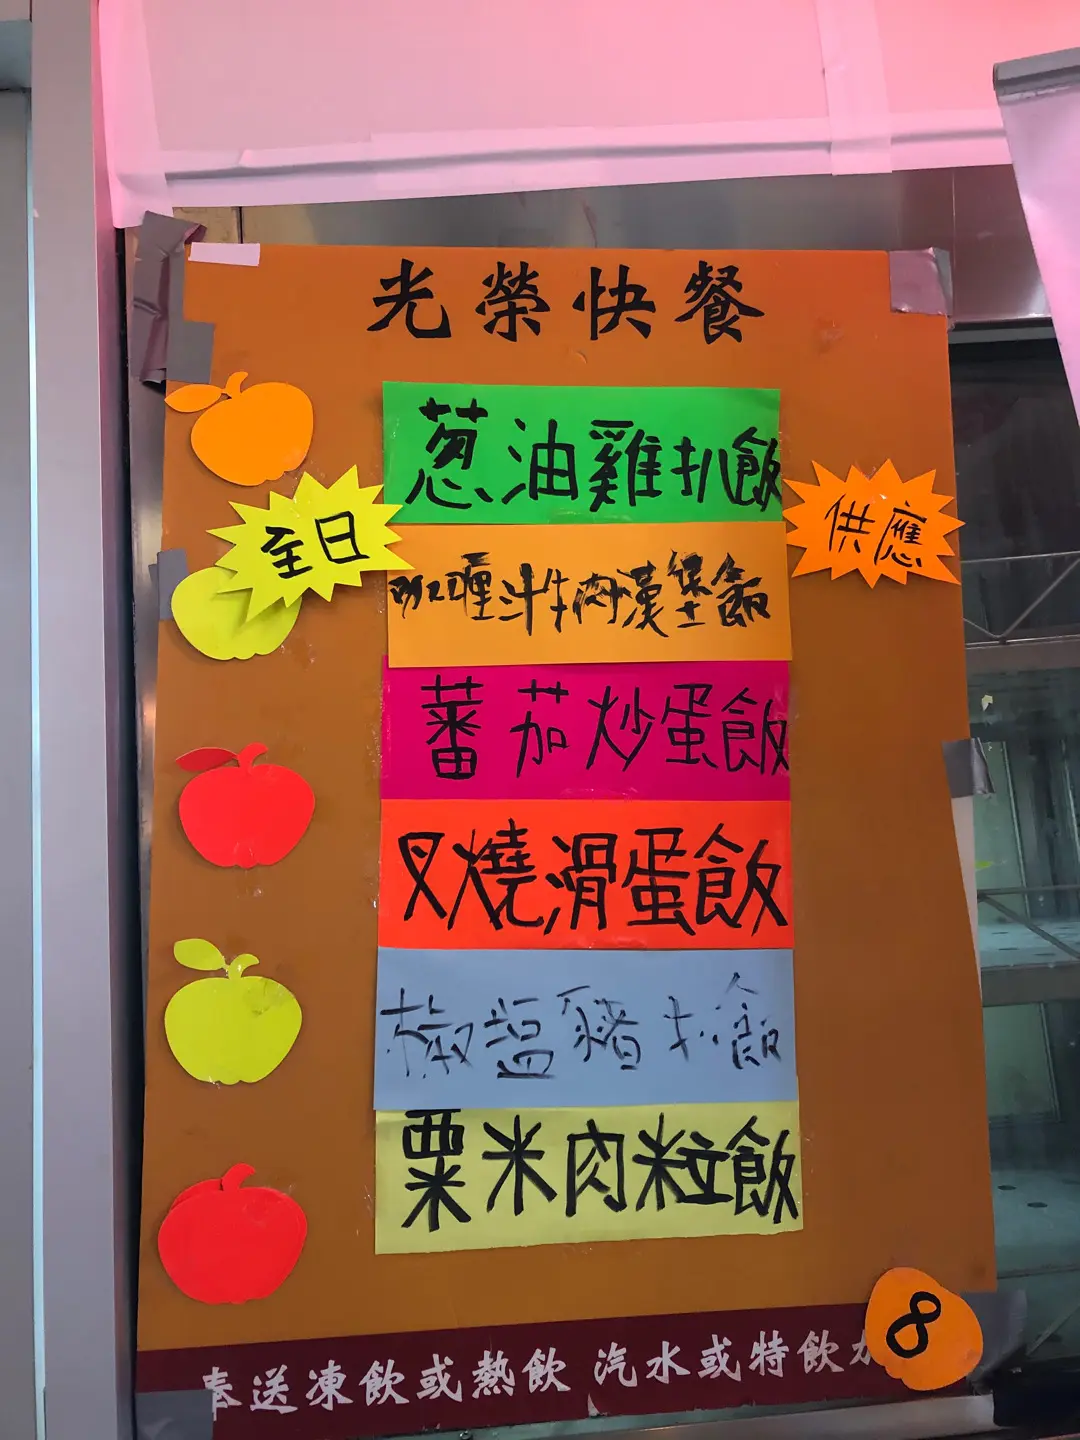 光榮快餐
葱油雞扒飯
全日
供應
咖喱牛肉漢堡飯
蕃茄炒蛋飯
叉燒滑蛋飯
椒塩豬扒飯
粟米肉粒飯
奉送凍飲或熱飲 汽水或特飲加
8